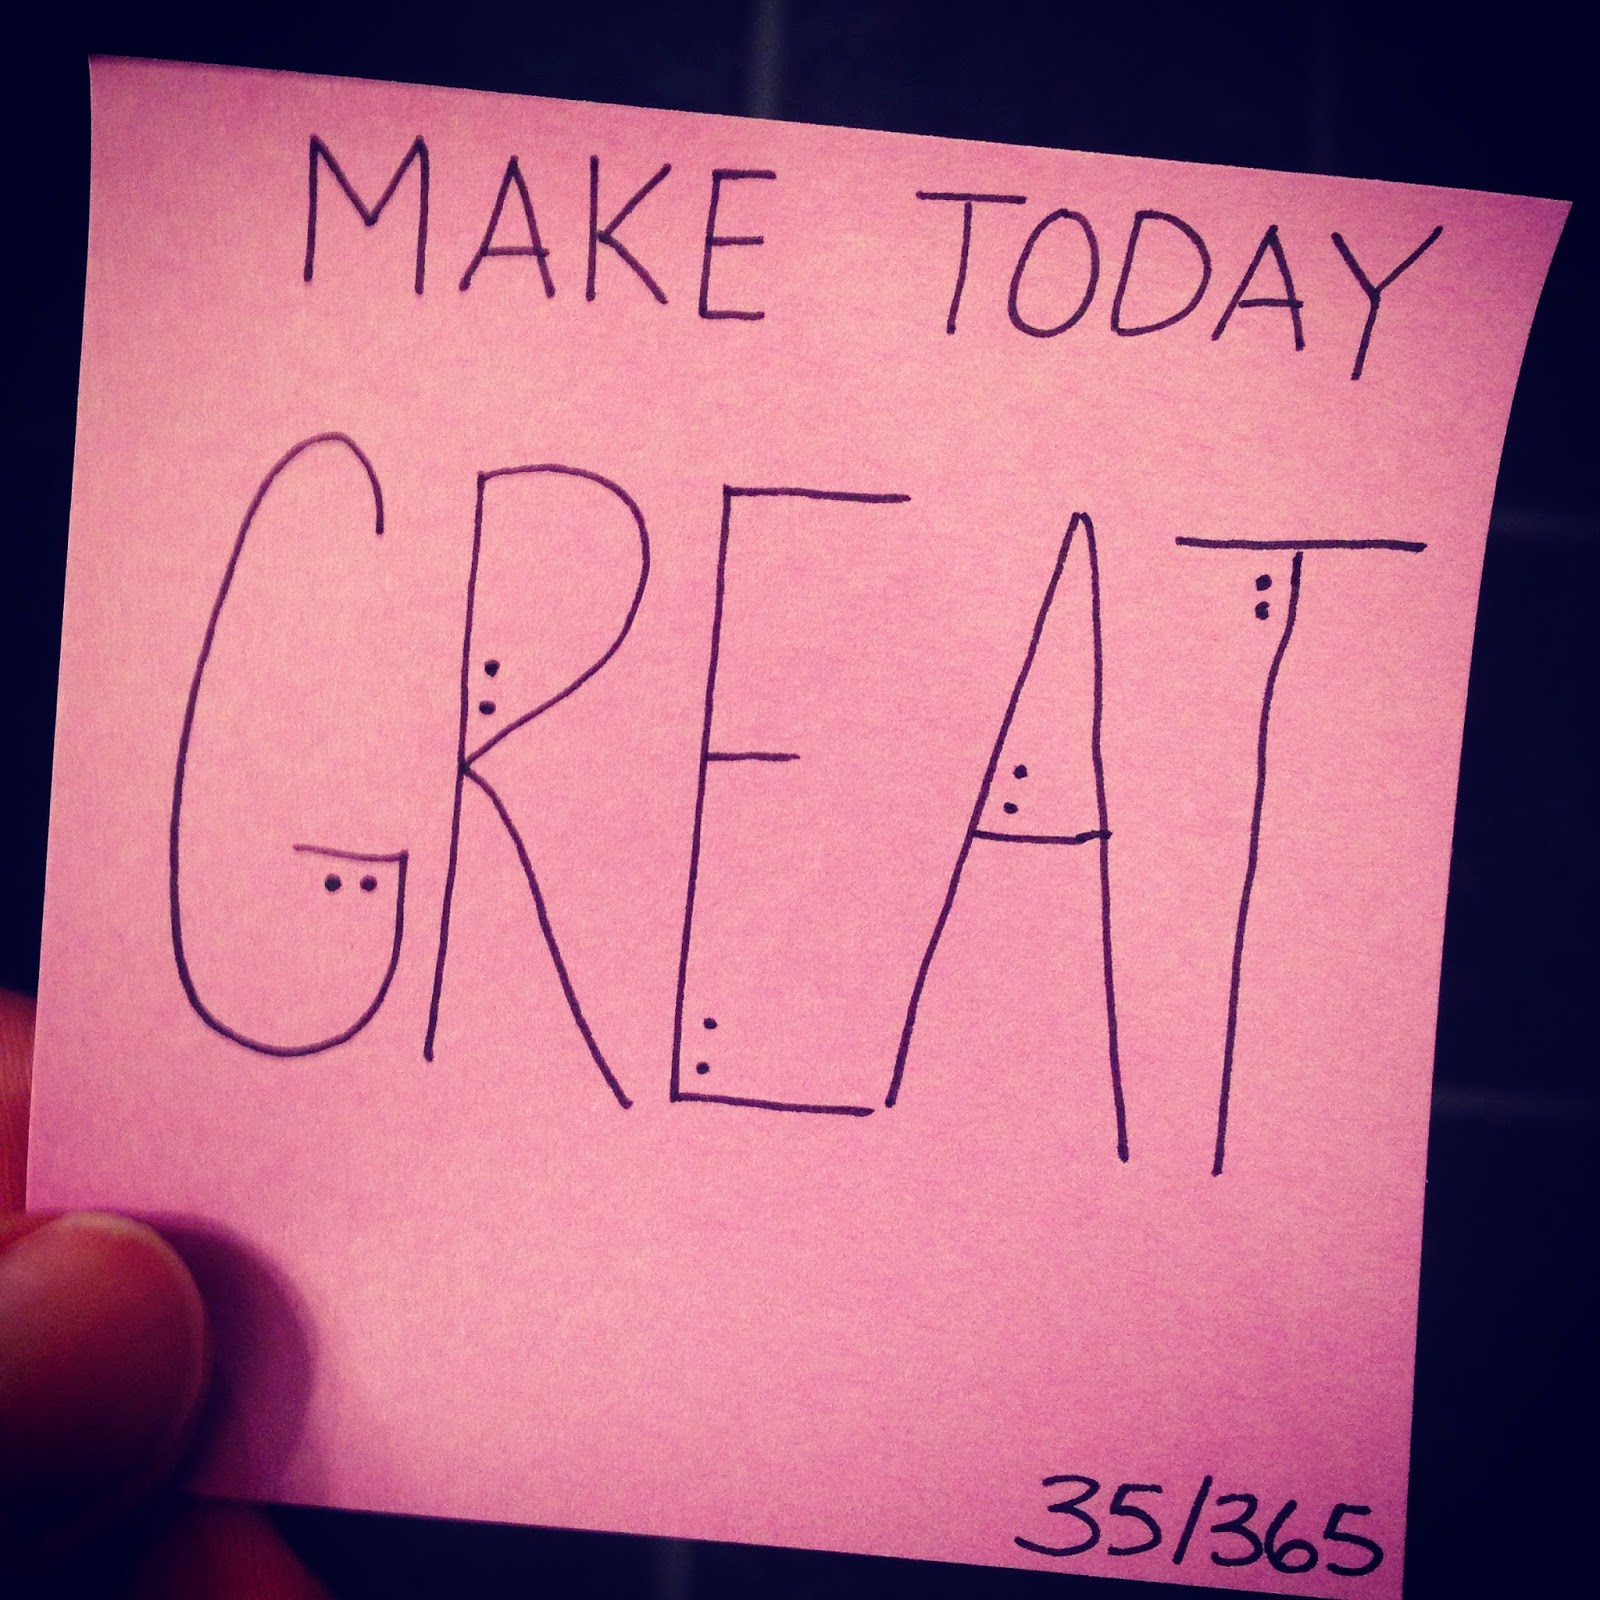 MAKE TODAY
GREAT
35/365